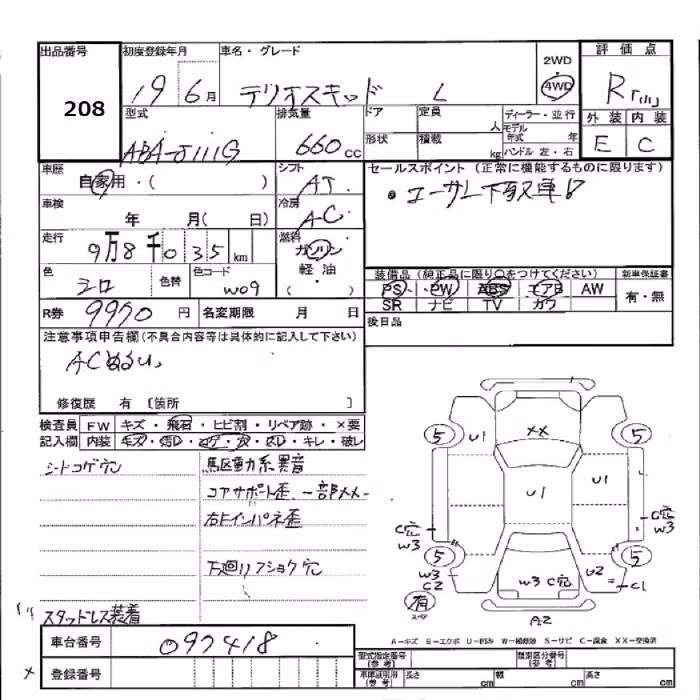 出品番号 初度登録年月 車名・グレード 2WD 評価点
208 19 6月 テリオスキッド L 4WD R
型式 排気量 ドア 定員 人 ディーラー・並行 外装 内装
ABA-J111G 660cc 形状 積載 kg モデル年式 年 ハンドル 左・右 E C
車歴 自家用・( ) シフト AT セールスポイント(正常に機能するものに限ります)
車検 年 月( 日) 冷房 AC ・ユーザー下取車
走行 9万8千035km 燃料 ガソリン 軽油 ( )
装備品(純正品に限り○をつけてください) 新車保証書
色 シロ 色替 色コード W09
PS PW ABS エアB AW 有・無
SR ナビ TV カワ
R券 9970円 名変期限 月 日 後日品
注意事項申告欄(不具合内容等は具体的に記入して下さい)
ACぬるい
修復歴 有 〔箇所 〕
検査員 FW キズ・飛石・ヒビ割・リペア跡・×要
記入欄 内装 キズ・汚レ・コゲ・穴・スレ・キレ・破レ
シートコゲ穴 駆動系異音
コアサポート歪 一部XX
右上インパネ歪
下廻りフショク穴
スタッドレス装着
5 U1 XX 5
U1 U1
C穴 W3 C穴 W3
5 5
W3 C2 W3 C穴 U2 C1
有 スペア A2
A-キズ E-エクボ U-凹み W-補修跡 S-サビ C-腐食 XX-交換済
車台番号 097418 型式指定番号(参考) 類別区分番号(参考)
登録番号 車庫証明用(参考) 長さ cm 幅 cm 高さ cm